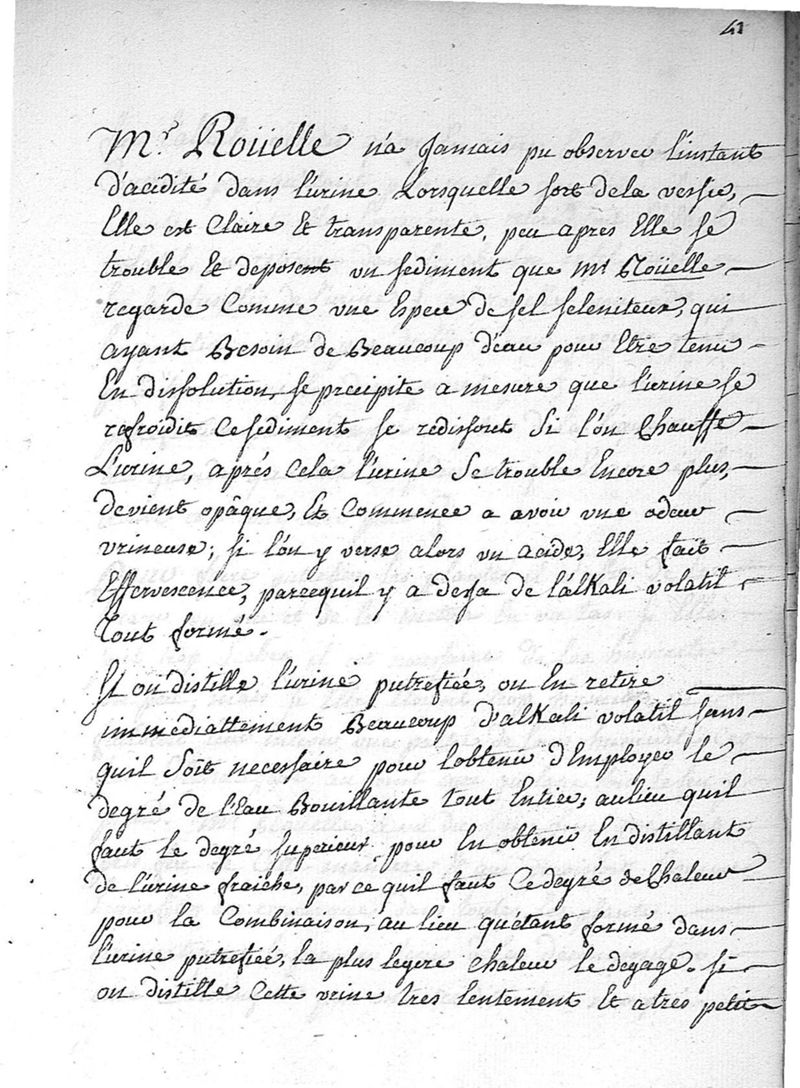 41
Mr. Roüelle n'a Jamais pu observer l'instant
d'acidité dans l'urine Lorsquelle sort dela vessie,
Elle est Claire Et transparente, peu après Elle se
trouble Et deposent un sediment que Mr Roüelle
regarde Comme une Espece de sel seleniteux, qui
ayant Besoin de Beaucoup d'eau pour Etre tenu
En dissolution, se precipite a mesure que l'urine se
refroidit Cesediment se redissout Si l'on Chauffe
L'urine, aprés Cela l'urine Se trouble Encore plus,
devient opâque, Et Commence a avoir une odeur
vrineuse; si l'on y verse alors un acide, Elle fait
Effervescence, parcequil y a deja de l'alKali volatil
Tout formé.
Si on distille l'urine putrefiée, on En retire
immediattement Beaucoup d'alKali volatil sans
quil Soit necessaire pour lobtenir d'Employer le
degré de l'Eau Bouillante tout Entier; aulieu quil
faut le degré superieur pour En obtenir En distillant
de l'urine fraiche, par ce quil faut Ce degré de Chaleur
pour la Combinaison, au lieu quétant formé dans
l'urine putrefiée, la plus legere chaleur le degage. Si
on distille Cette vrine tres lentement Et a tres petit